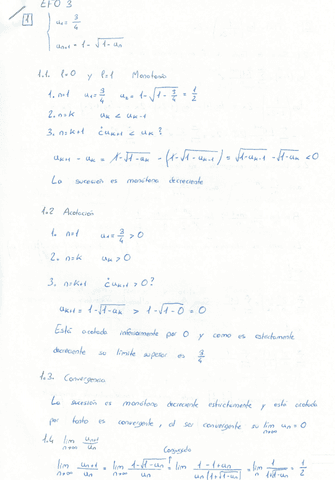 EFO 3
1 { u₁ = 3/4
uₙ₊₁ = 1 - √(1-uₙ)
1.1. l=0 y l=1 Monotonía
1. n=1 u₁ = 3/4 u₂ = 1 - √(1 - 3/4) = 1/2
2. n=k uₖ < uₖ₋₁
3. n=k+1 ¿uₖ₊₁ < uₖ?
uₖ₊₁ - uₖ = 1-√(1-uₖ) - (1-√(1-uₖ₋₁)) = √(1-uₖ₋₁) - √(1-uₖ) < 0
La sucesión es monótona decreciente
1.2 Acotación
1. n=1 u₁ = 3/4 > 0
2. n=k uₖ > 0
3. n=k+1 ¿uₖ₊₁ > 0?
uₖ₊₁ = 1-√(1-uₖ) > 1-√(1-0) = 0
Está acotada inferiormente por 0 y como es estrictamente
decreciente su límite superior es 3/4
1.3. Convergencia
La sucesión es monótona decreciente estrictamente y está acotada
por tanto es convergente, al ser convergente su lim n→∞ uₙ = 0
1.4 lim n→∞ uₙ₊₁/uₙ
Conjugado
lim n→∞ uₙ₊₁/uₙ = lim n→∞ (1-√(1-uₙ))/uₙ = lim (1-1+uₙ)/(uₙ(1+√(1-uₙ))) = lim n→∞ 1/(1+√(1-uₙ)) = 1/2